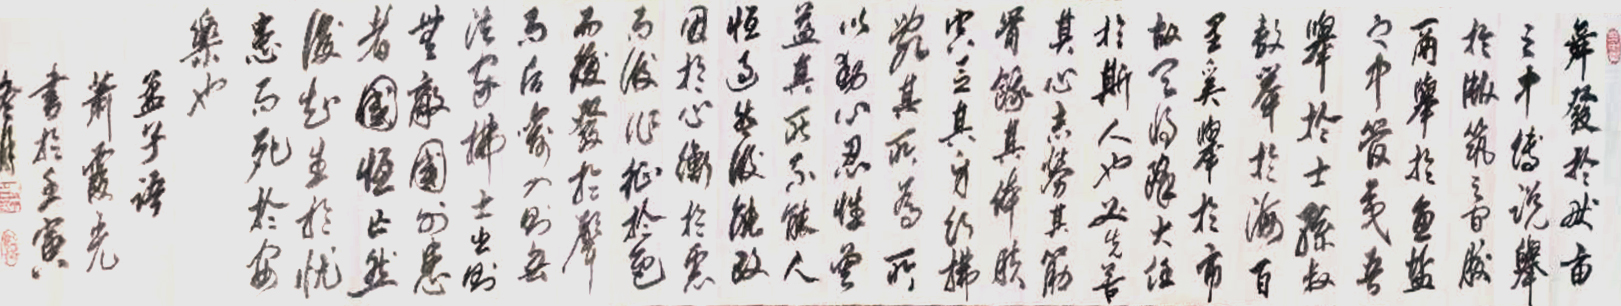 舜發於畎亩
之中傅説舉
於版筑之間膠
鬲舉於魚盐
之中管夷吾
舉於士孫叔
敖舉於海百
里奚舉於市
故天将降大任
於斯人也必先苦
其心志勞其筋
骨餓其体膚
空乏其身行拂
亂其所為所
以動心忍性曾
益其所不能人
恒過然後能改
困於心衡於慮
而後作征於色
而後發於聲
而后喻入則無
法家拂士出則
無敵國外患
者國恒亡然
後知生於忧
患而死於安
樂也
孟子语
蕭霞光
書於壬寅